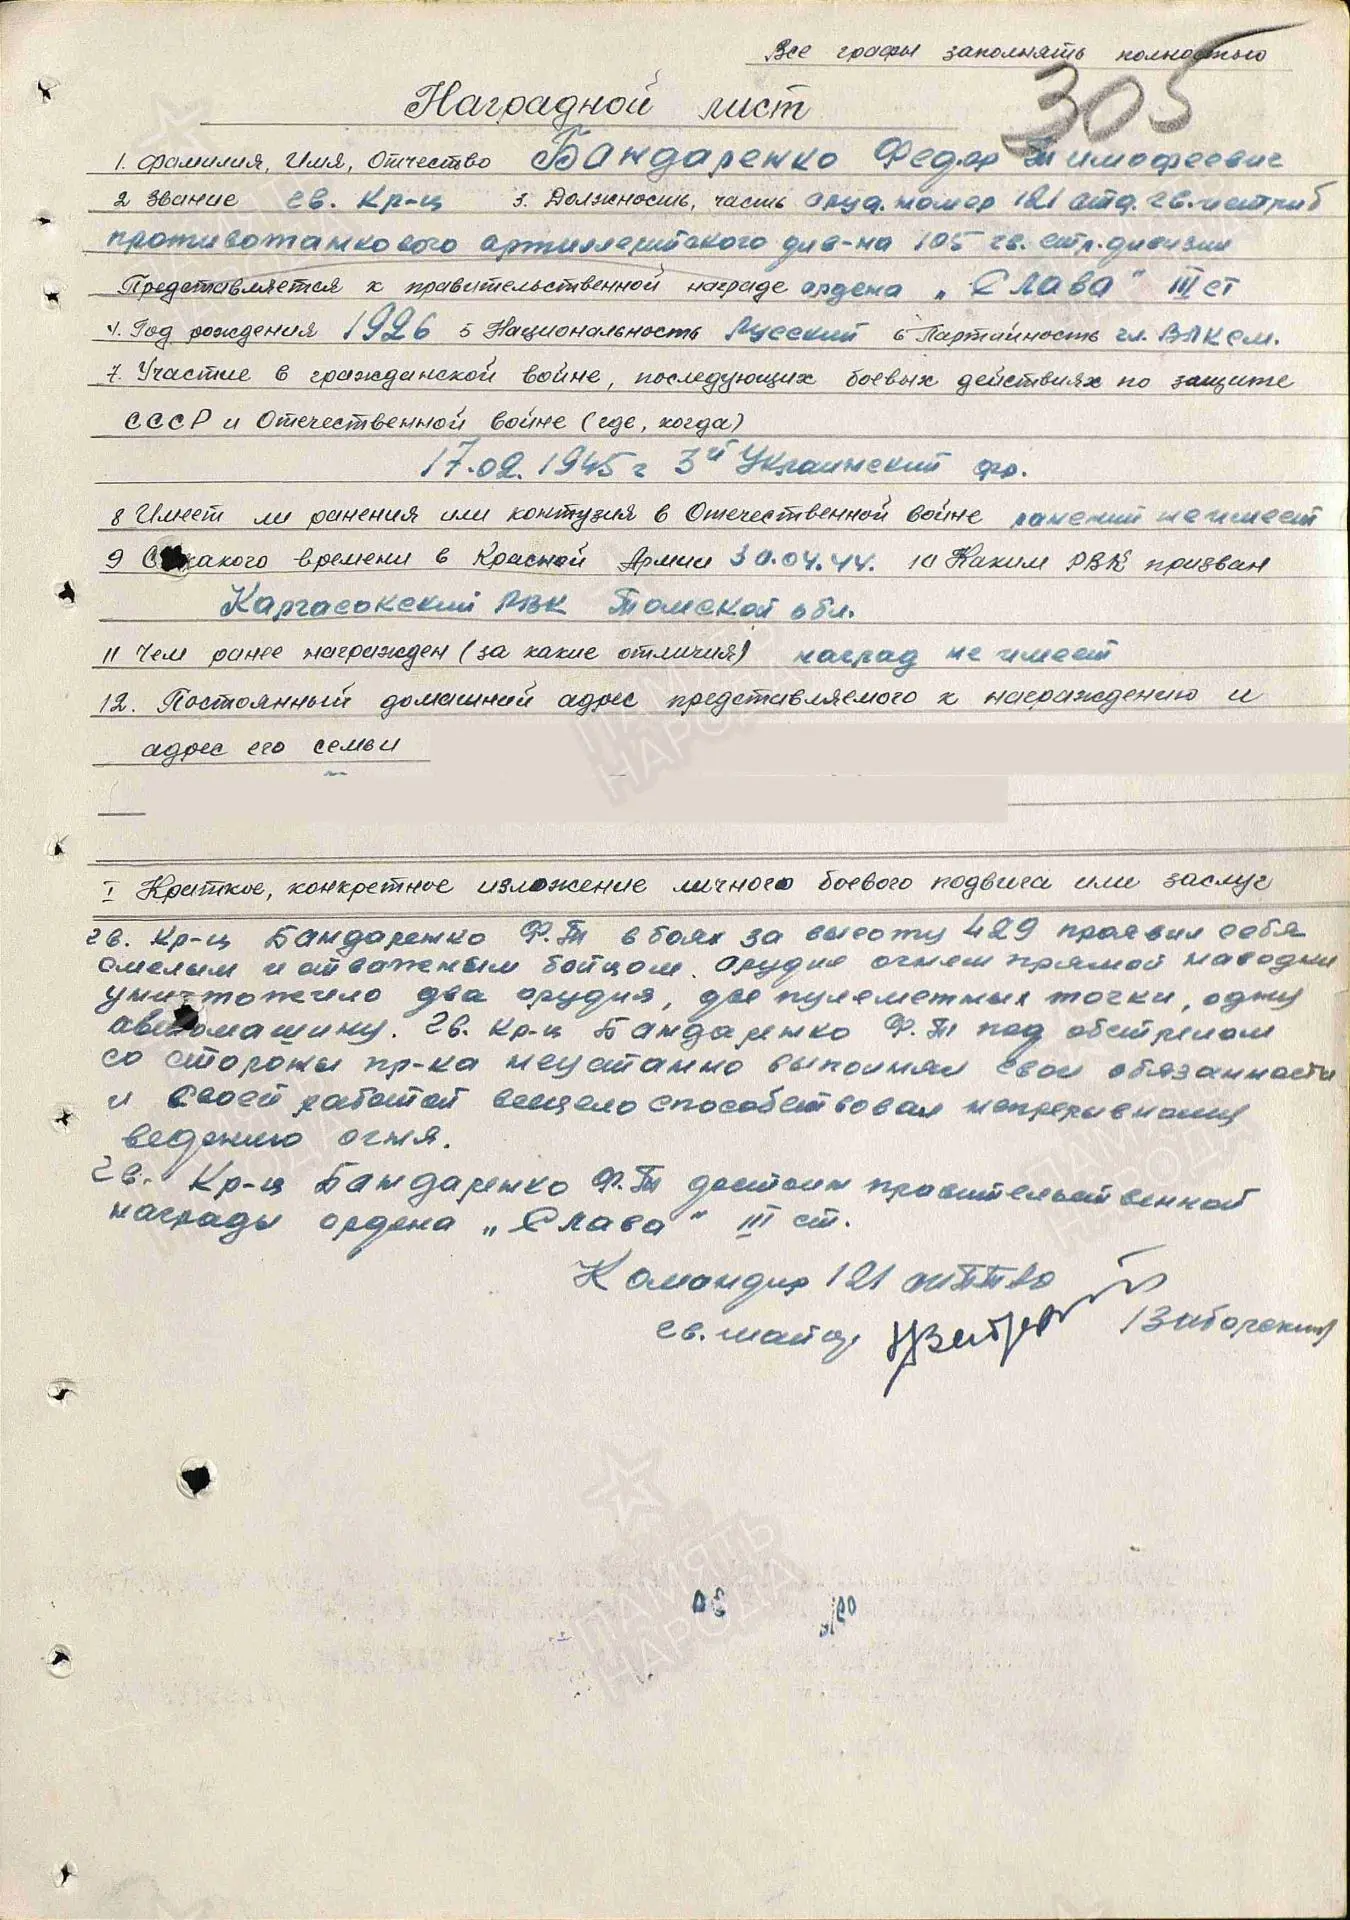 Все графы заполнять полностью
305
Наградной лист
1. Фамилия, Имя, Отчество Бандаренко Федор Тимофеевич
2 Звание гв. Кр-ц 3. Должность, часть оруд. номер 121 отд. гв. истриб
противотанкового артиллерийского див-на 105 гв. стр. дивизии
Представляется к правительственной награде ордена „Слава" III ст
4. Год рождения 1926 5 Национальность Русский 6 Партийность чл. ВЛКСМ.
7. Участие в гражданской войне, последующих боевых действиях по защите
СССР и Отечественной войне (где, когда)
17.02.1945 г 3й Украинский фр.
8 Имеет ли ранения или контузия в Отечественной войне ранений не имеет
9 С какого времени в Красной Армии 30.04.44. 10 Каким РВК призван
Каргасокский РВК Томской обл.
11 Чем ранее награжден (за какие отличия) наград не имеет
12. Постоянный домашний адрес представляемого к награждению и
адрес его семьи
I Краткое, конкретное изложение личного боевого подвига или заслуг
гв. Кр-ц Бандаренко Ф.Т в боях за высоту 429 проявил себя
смелым и отважным бойцом. Орудие огнем прямой наводки
уничтожило два орудия, две пулеметных точки, одну
автомашину. Гв. Кр-ц Бандаренко Ф.Т под обстрелом
со стороны пр-ка неустанно выполнял свои обязанности
и своей работой всецело способствовал непрерывному
ведению огня.
Гв. Кр-ц Бандаренко Ф.Т достоин правительственной
награды ордена „Слава" III ст.
Командир 121
гв. майор
ПАМЯТЬ НАРОДА